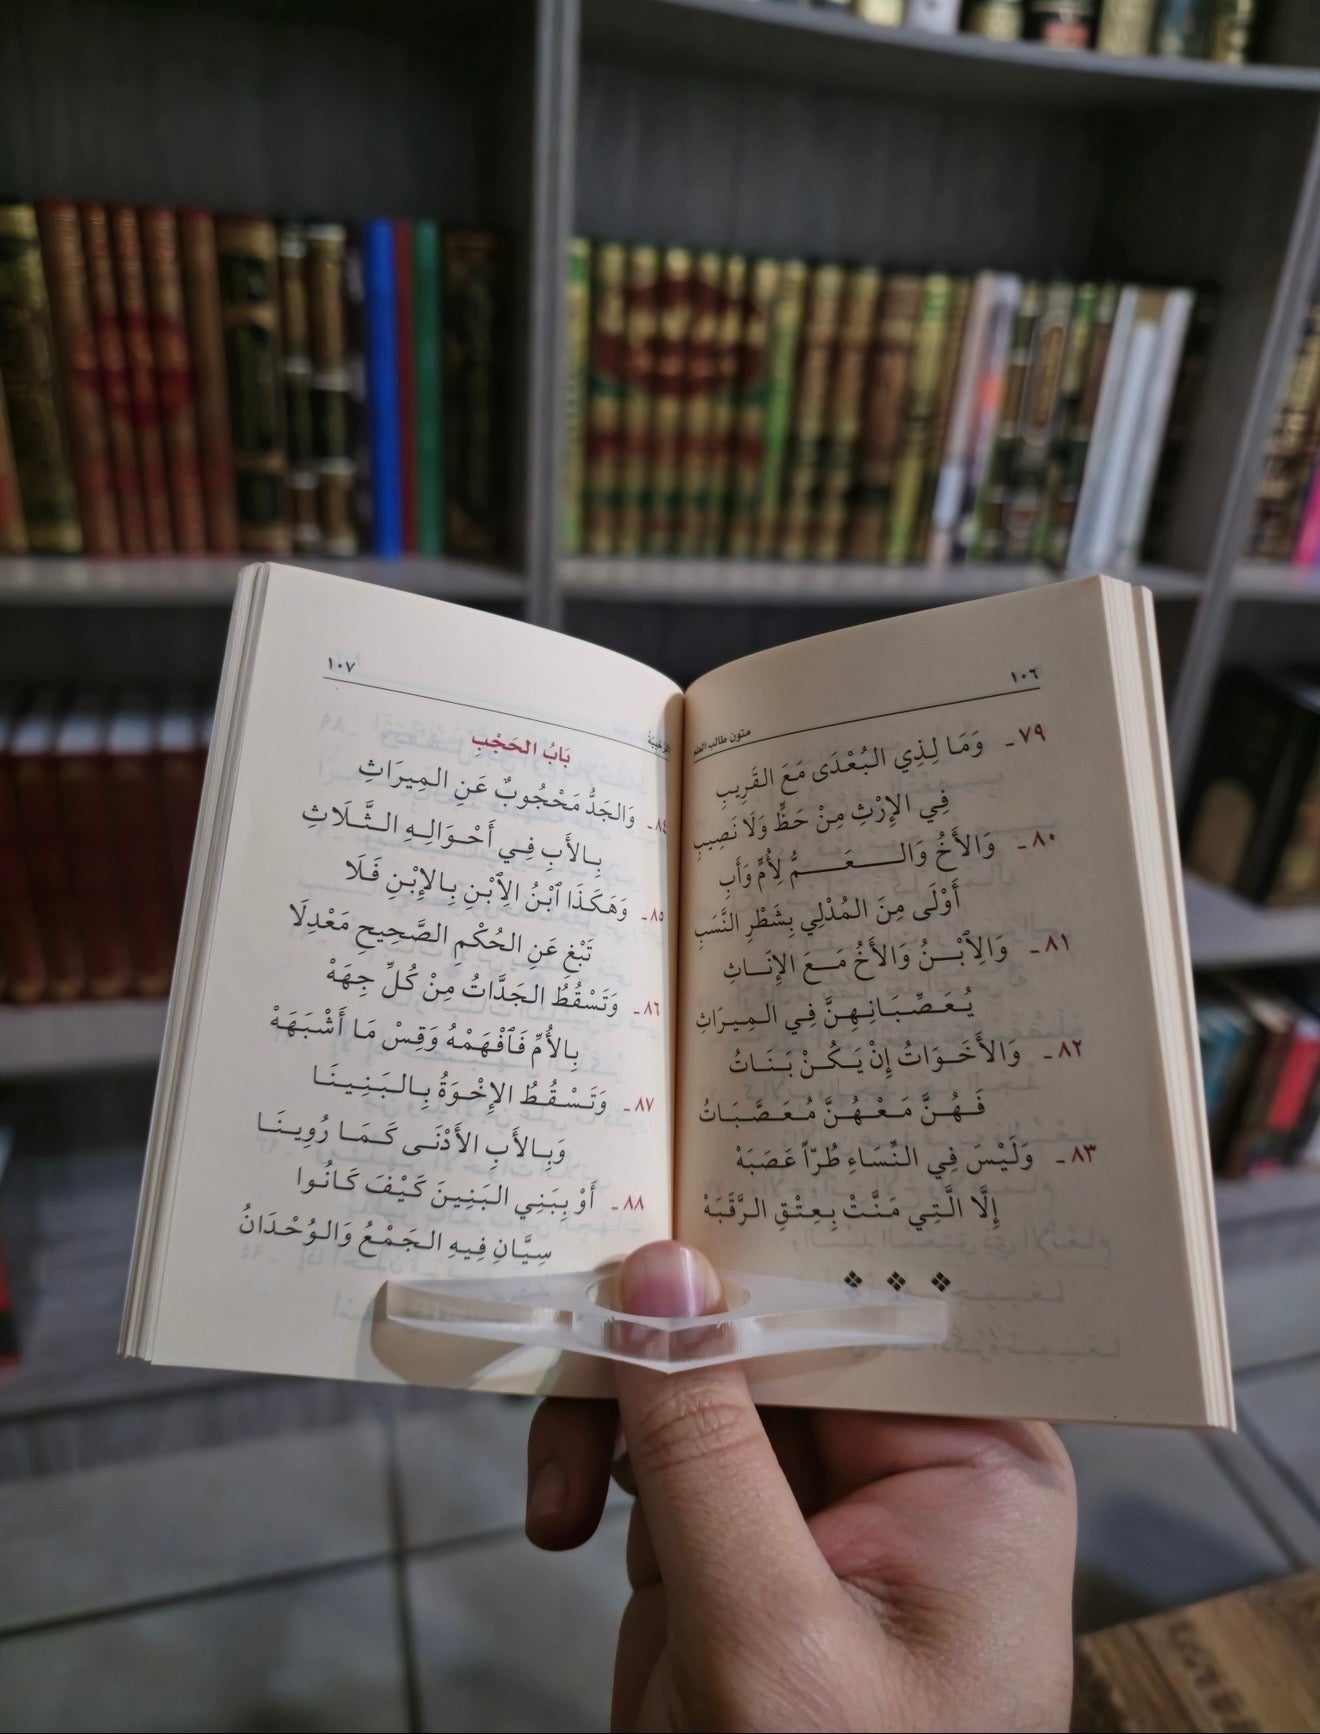 ١٠٦
متون طالب العلم
٧٩ـ وَمَا لِذِي البُعْدَى مَعَ القَرِيبِ
فِي الإِرْثِ مِنْ حَظٍّ وَلَا نَصِيبِ
٨٠ـ وَالأَخُ وَالـــعَـــمُّ لِأُمٍّ وَأَبِ
أَوْلَى مِنَ المُدْلِي بِشَطْرِ النَّسَبِ
٨١ـ وَالِٱبْــنُ وَالأَخُ مَــعَ الإِنَــاثِ
يُـعَـصِّـبَـانِـهِـنَّ فِي الـمِـيرَاثِ
٨٢ـ وَالأَخَـوَاتُ إِنْ يَـكُـنْ بَـنَـاتُ
فَـهُـنَّ مَـعْـهُـنَّ مُـعَـصَّـبَـاتُ
٨٣ـ وَلَيْسَ فِي النِّسَاءِ طُرّاً عَصَبَهْ
إِلَّا الَّـتِي مَـنَّـتْ بِـعِـتْـقِ الـرَّقَـبَـهْ
١٠٧
الرحبية
بَابُ الحَجْبِ
٨٤ـ وَالجَدُّ مَحْجُوبٌ عَنِ المِيرَاثِ
بِـالأَبِ فِـي أَحْـوَالِـهِ الـثَّـلَاثِ
٨٥ـ وَهَكَذَا ٱبْنُ الِٱبْنِ بِالِٱبْنِ فَلَا
تَبْغِ عَنِ الحُكْمِ الصَّحِيحِ مَعْدِلَا
٨٦ـ وَتَسْقُطُ الجَدَّاتُ مِنْ كُلِّ جِهَهْ
بِالأُمِّ فَٱفْهَمْهُ وَقِسْ مَا أَشْبَهَهْ
٨٧ـ وَتَـسْـقُـطُ الإِخْـوَةُ بِـالـبَـنِـيـنَـا
وَبِـالأَبِ الأَدْنَـى كَـمَـا رُوِيـنَـا
٨٨ـ أَوْ بِبَنِي البَنِينَ كَيْفَ كَانُوا
سِيَّانِ فِيهِ الجَمْعُ وَالوُحْدَانُ